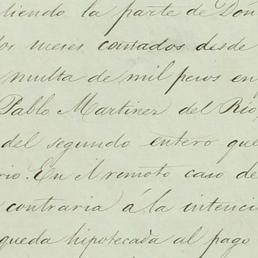 liendo la parte de Don
os meses contados desde
multa de mil pesos en
Pablo Martinez del Rio,
del segundo entero que
rio. En el remoto caso de
contraria á la intenci
queda hipotecada al pago